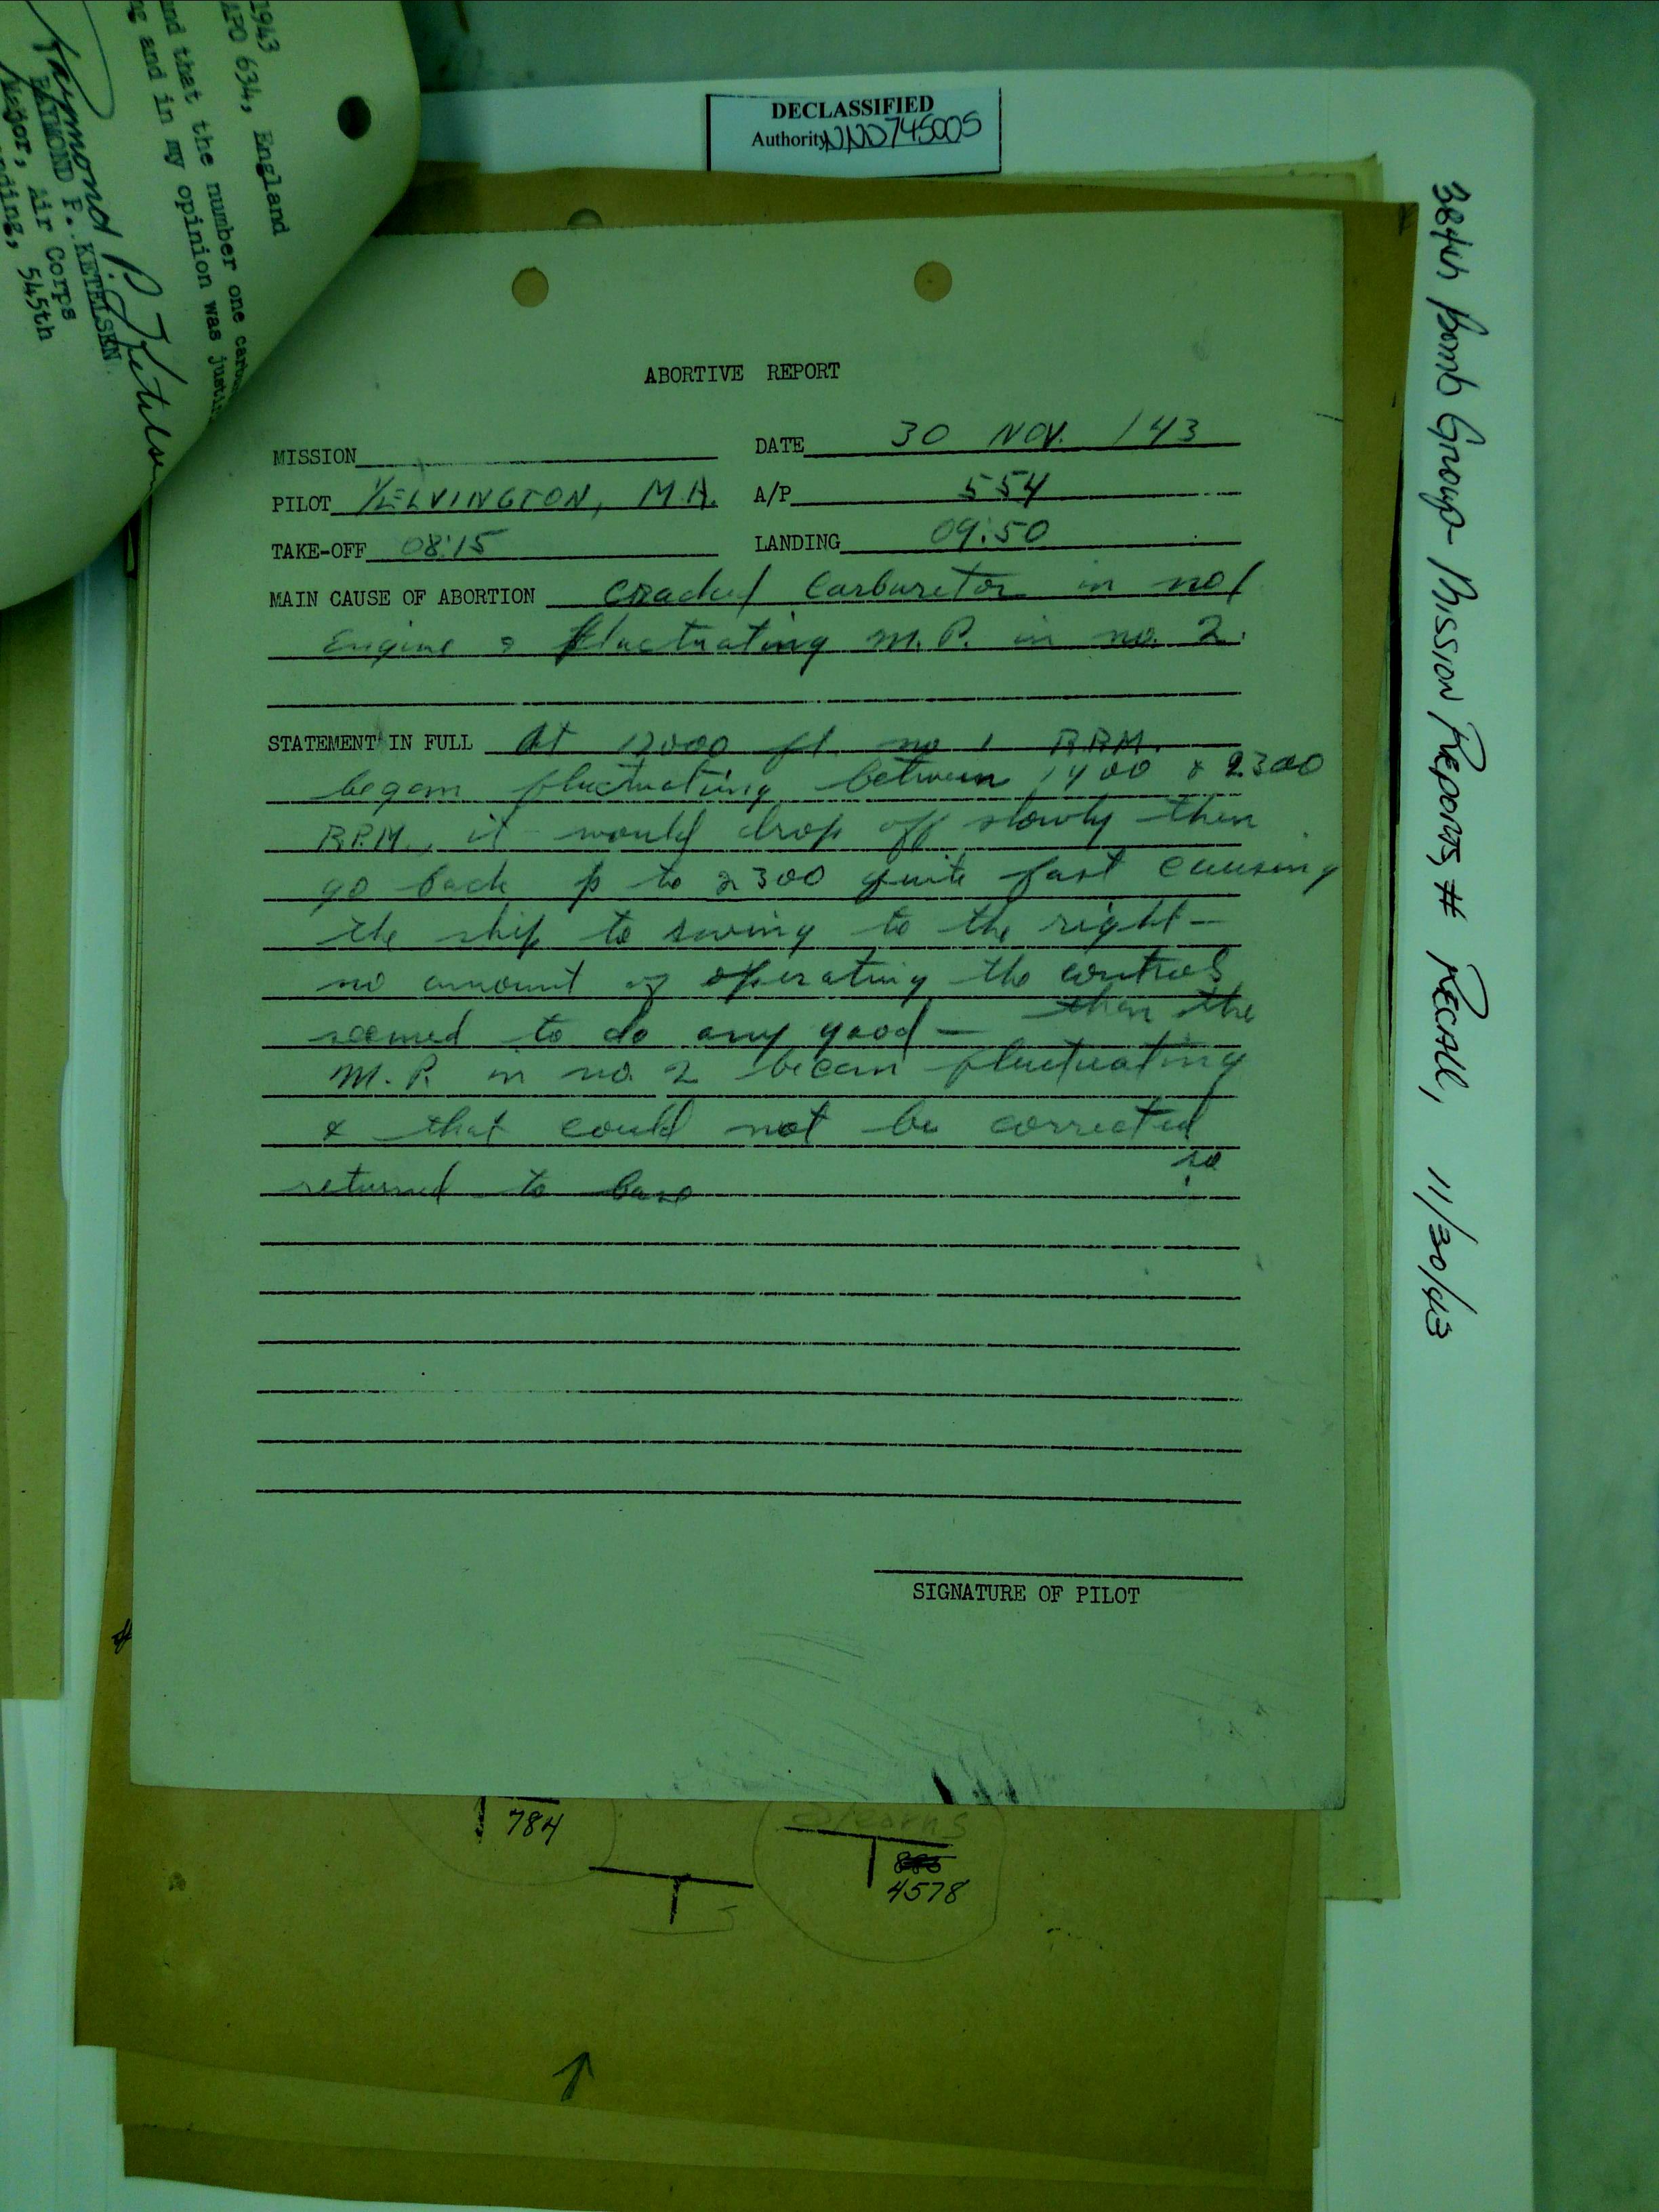 1943
APO 634, England
nd that the number one carbu
ng and in my opinion was justi
Raymond P. Ketelsen
RAYMOND P. KETELSEN
Major, Air Corps
nding, 545th
DECLASSIFIED
Authority NND745005
384th Bomb Group Mission Reports, # Recall, 11/30/43
ABORTIVE REPORT
MISSION
DATE 30 NOV. /43
PILOT YELVINGTON, M.H.
A/P 554
TAKE-OFF 08:15
LANDING 09:50
MAIN CAUSE OF ABORTION Cracked Carburetor in no 1
Engine & fluctuating M.P. in no. 2.
STATEMENT IN FULL At 12000 ft. no 1 R.P.M.
began fluctuating between 1400 & 2300
R.P.M., it would drop off slowly then
go back p to 2300 quite fast causing
the ship to swing to the right —
no amount of operating the controls
seemed to do any good — then the
M.P. in no. 2 began fluctuating
& that could not be corrected
so
returned to base
SIGNATURE OF PILOT
784
Stearns
4578